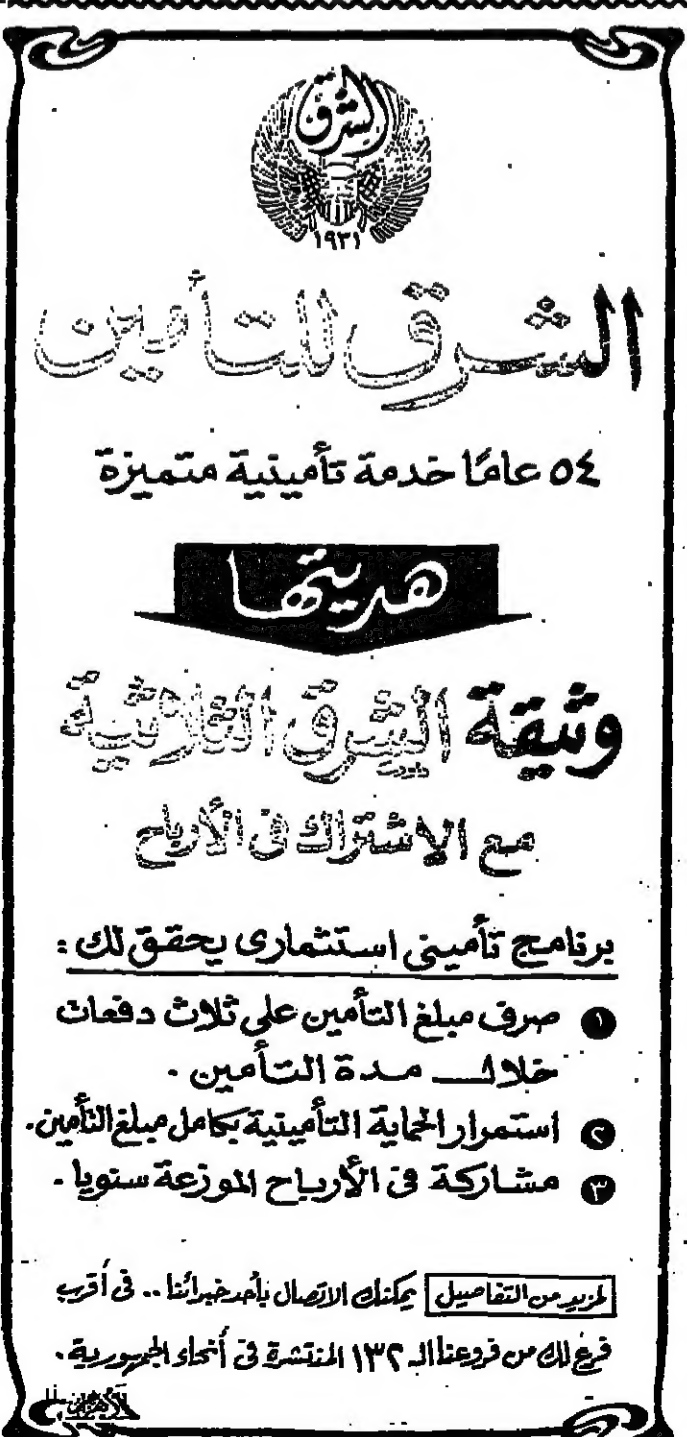 الشرق
١٩٣١
الشرق للتأمين
٥٤ عامًا خدمة تأمينية متميزة
هديتها
وثيقة الشرق الثلاثية
مع الاشتراك فى الأرباح
برنامج تأمينى استثمارى يحقق لك :
١ صرف مبلغ التأمين على ثلاث دفعات
خلال مدة التأمين .
٢ استمرار الحماية التأمينية بكامل مبلغ التأمين .
٣ مشاركة فى الأرباح الموزعة سنويا .
لمزيد من التفاصيل يمكنك الاتصال بأحد خبرائنا .. فى أقرب
فرع لك من فروعنا الـ ١٣٢ المنتشرة فى أنحاء الجمهورية .